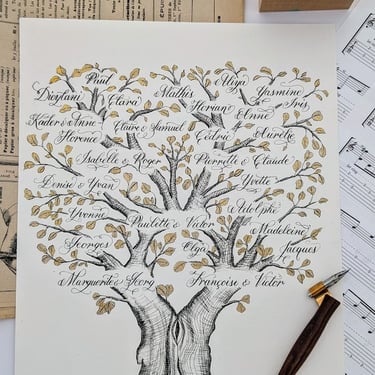 Paul
Mathis
Aliya
Yasmine
Diofani
Clara
Florian
Iris
Kader & Anne
Claire & Samuel
Anne
Florence
Cédric
Aurélie
Isabelle & Roger
Pierrette & Claude
Denise & Yvan
Yvette
Yvonne
Paulette & Victor
Adolphe
Georges
Olga
Madeleine
Jacques
Marguerite & Georg
Françoise & Victor